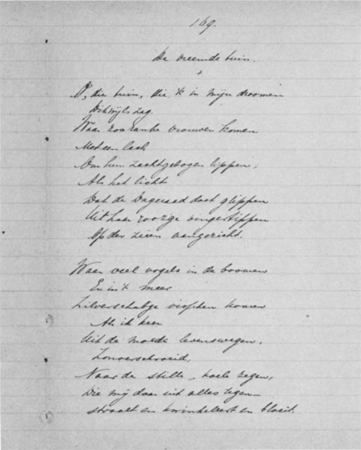 169.
De vreemde tuin.
O, die tuin, die 'k in mijn droomen
Dikwijls zag.
Waar zoo ranke vrouwen komen
Met een lach
Om hun zachtgebogen lippen,
Als het licht
Dat de Dageraad doet glippen
Uit haar rooz'ge vingertippen
Op der zeeën aangezicht.
Waar veel vogels in de boomen
En in 't meer
Zilverschubge visschen komen
Als ik keer
Uit de moede levenswegen,
Zonverschroeid,
Naar de stille, koele zegen,
Die mij daar uit alles tegen-
straalt en kwinkeleert en bloeit.